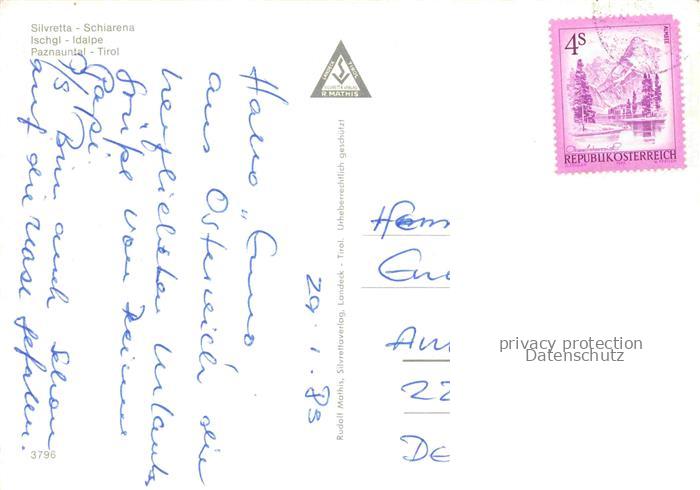 Silvretta - Schiarena
Ischgl - Idalpe
Paznauntal - Tirol
LANDECK TIROL
SILVRETTA VERLAG
R. MATHIS
4S
ALMSEE
REPUBLIK ÖSTERREICH
29. 1. 83
Hallo "Enno"
aus Österreich die
herzlichsten Urlaubs
Grüße von Deinem
Papi.
P/S Bin auch schon
auf die Nase gefallen.
Rudolf Mathis, Silvrettaverlag, Landeck - Tirol. Urheberrechtlich geschützt!
Herrn
Am
22
DE
privacy protection
Datenschutz
3796